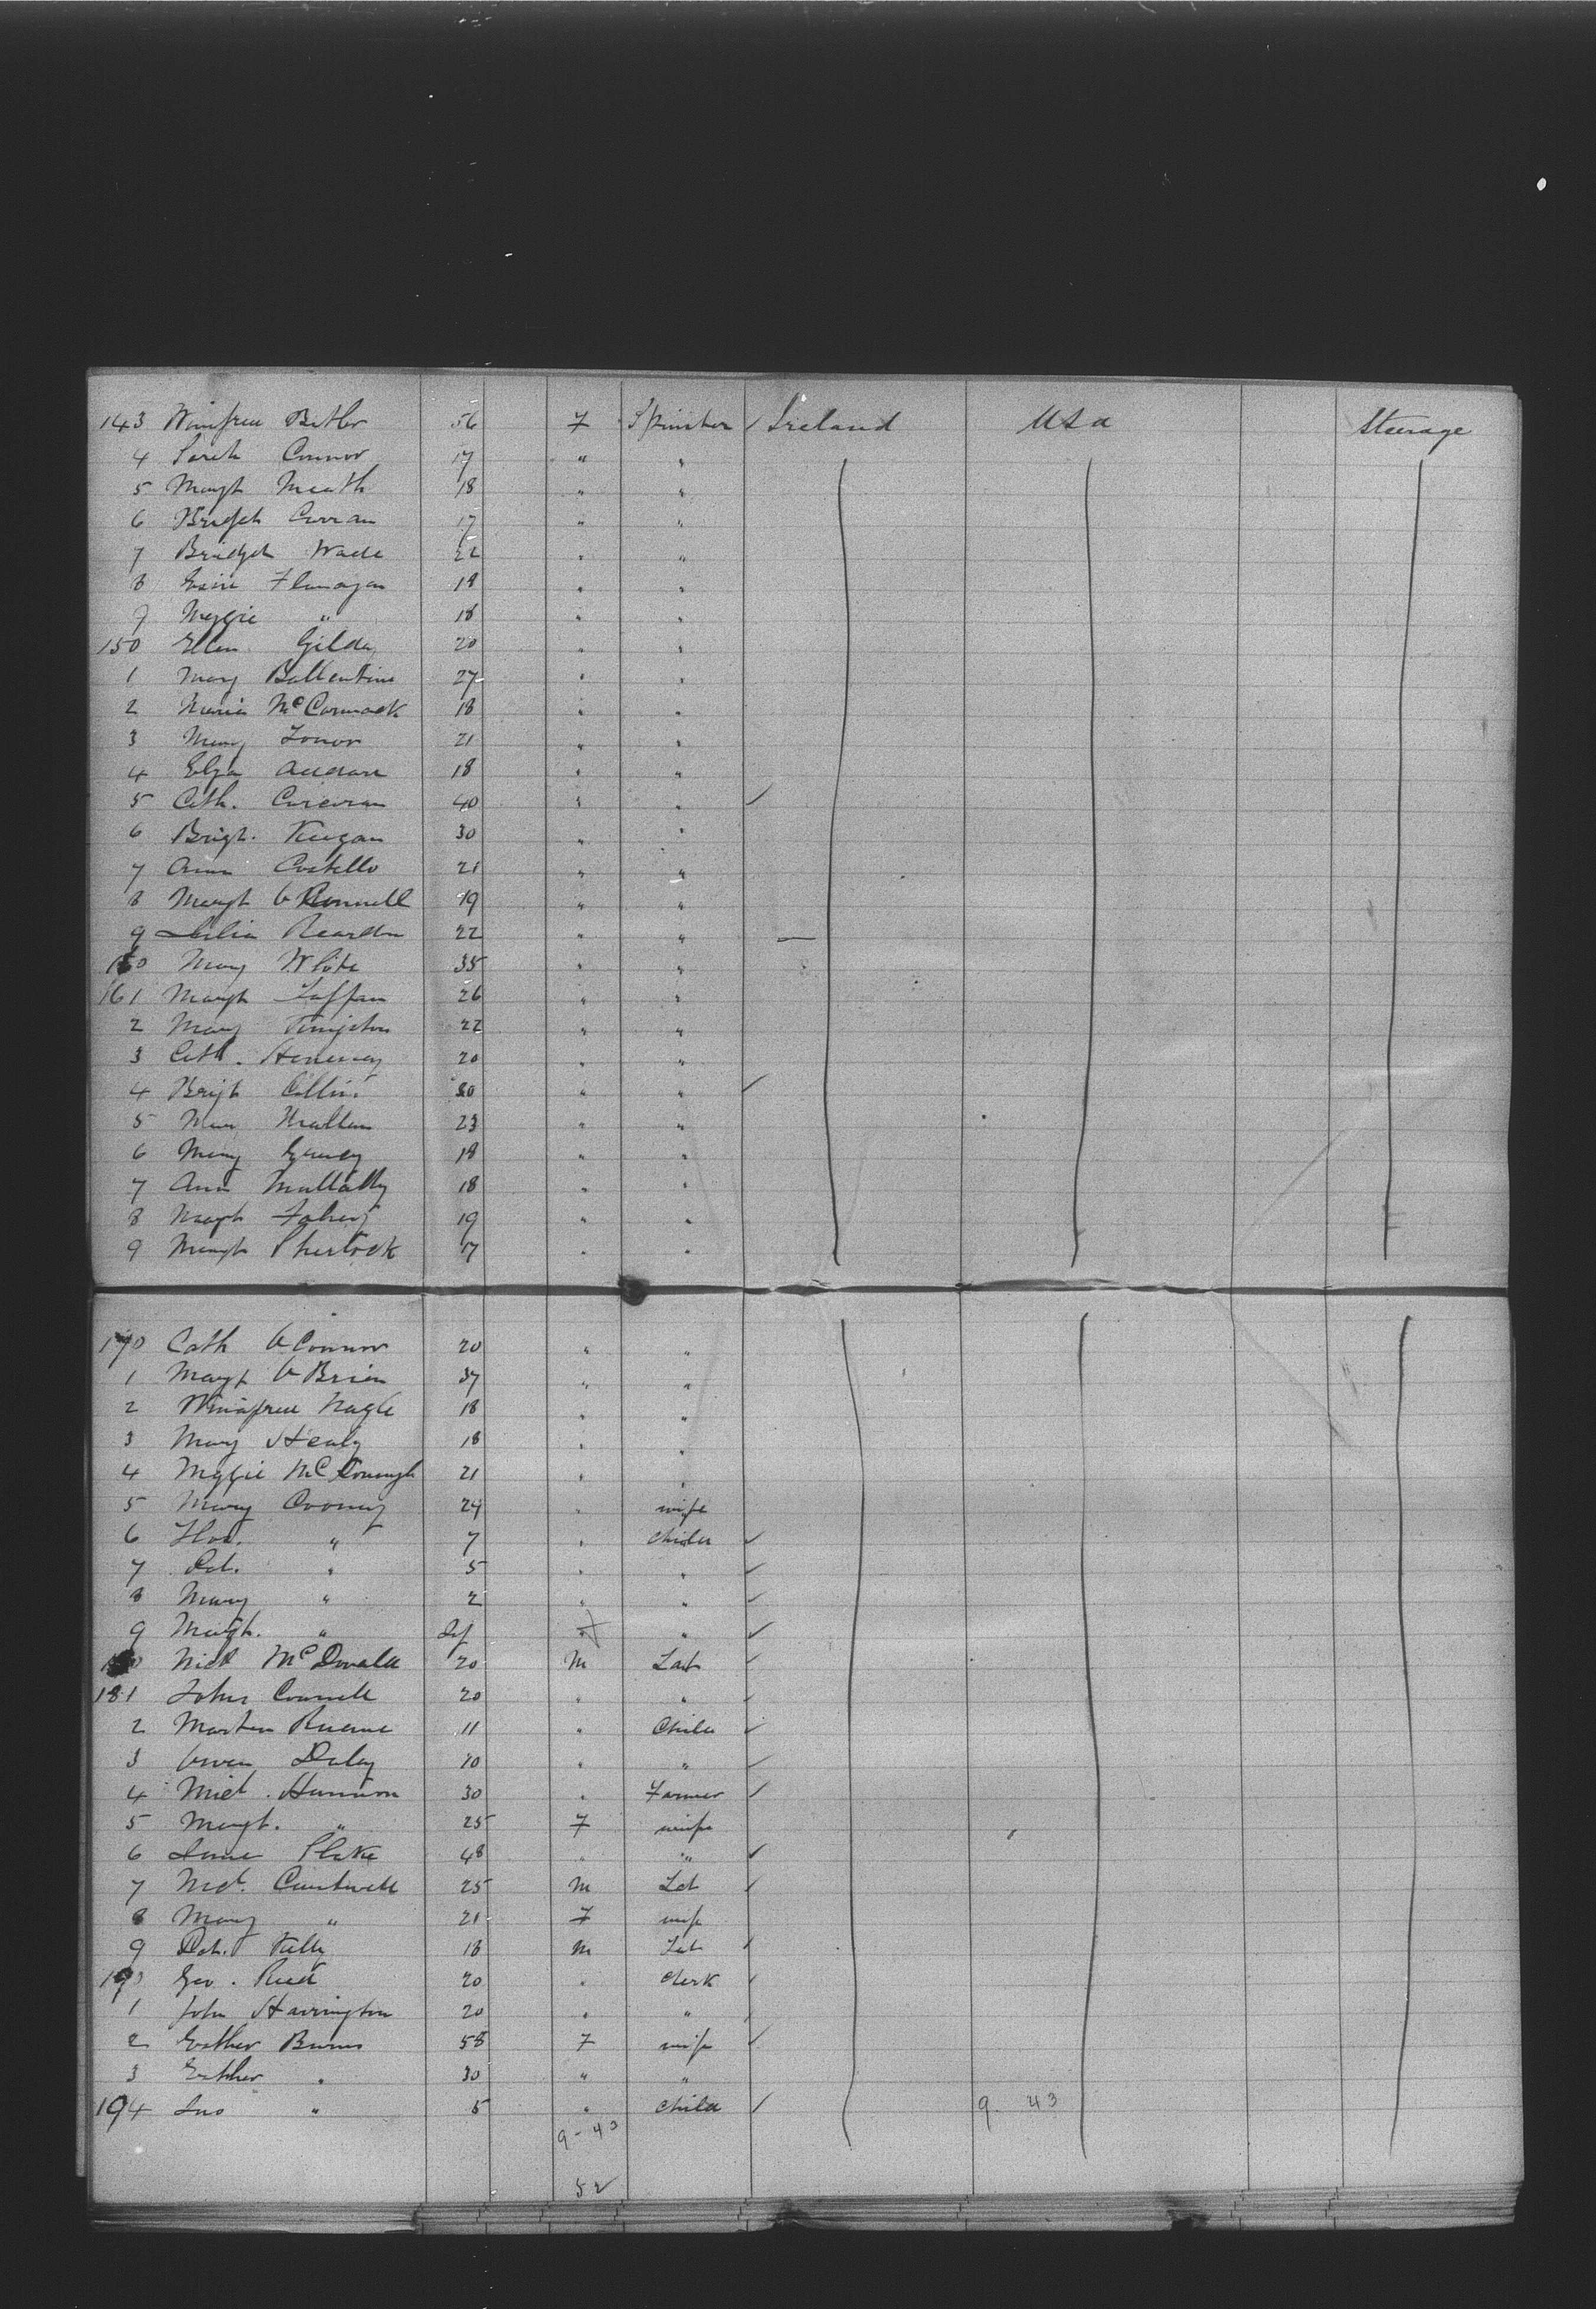 143 Winifred Butler 56 F Spinster ✓ Ireland USA Steerage
4 Sarah Connor 17 " "
5 Margt Meath 18 " "
6 Bridget Curran 17 " "
7 Bridget Wade 22 " "
8 Flanagan 18 " "
9 Maggie " 18 " "
150 Ellen Gilda 20 " "
1 Mary Ballentine 27 " "
2 Maria McCormack 18 " "
3 Mary 21 " "
4 Eliza 18 " "
5 Cath. Corcoran 40 " " ✓
6 Brigt. Keegan 30 " "
7 Ann Costello 21 " "
8 Margt O'Connell 19 " "
9 Delia Reardon 22 " " —
160 Mary White 35 " "
161 Margt 26 " "
2 Mary 22 " "
3 Cath. 20 " "
4 Brigt Collins 30 " " ✓
5 23 " "
6 Mary 18 " "
7 Ann Mullally 18 " "
8 Margt Fahey 19 " "
9 Margt Sherlock 17 " "
170 Cath O'Connor 20 " "
1 Margt O'Brien 37 " "
2 Winifred Nagle 18 " "
3 Mary Healy 18 " "
4 Maggie McDonough 21 " "
5 Mary Cooney 24 " wife
6 Thos. " 7 " child ✓
7 Pat. " 5 " " ✓
8 Mary " 2 " " ✓
9 Margt. " Inf " " ✓
180 Nich McDonald 20 M Lab ✓
181 John Connell 20 " " ✓
2 Martin Ruane 11 " Child ✓
3 Owen Daley 10 " " ✓
4 Mich. Hannon 30 " Farmer ✓
5 Margt. " 25 F wife
6 Blake 48 " " ✓
7 Mcl. Cantwell 25 M Lab ✓
8 Mary " 21 F wife
9 Pat. Kelly 18 M Lab ✓
190 Geo. Reed 20 " Clerk ✓
1 John Harrington 20 " " ✓
2 Esther Burns 58 F wife ✓
3 Esther " 30 " "
194 Jno " 5 " Child ✓ 9 43
9-43
52